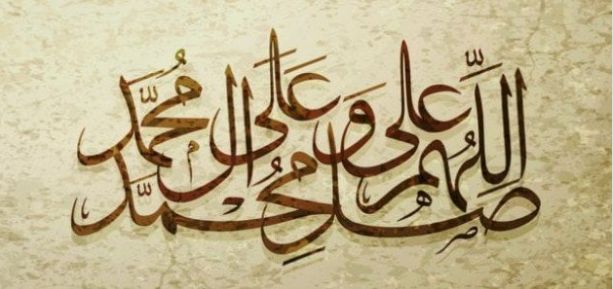 اللَّهُمَّ صل على مُحمَّد وَعَلَى ال مُحَمَّد